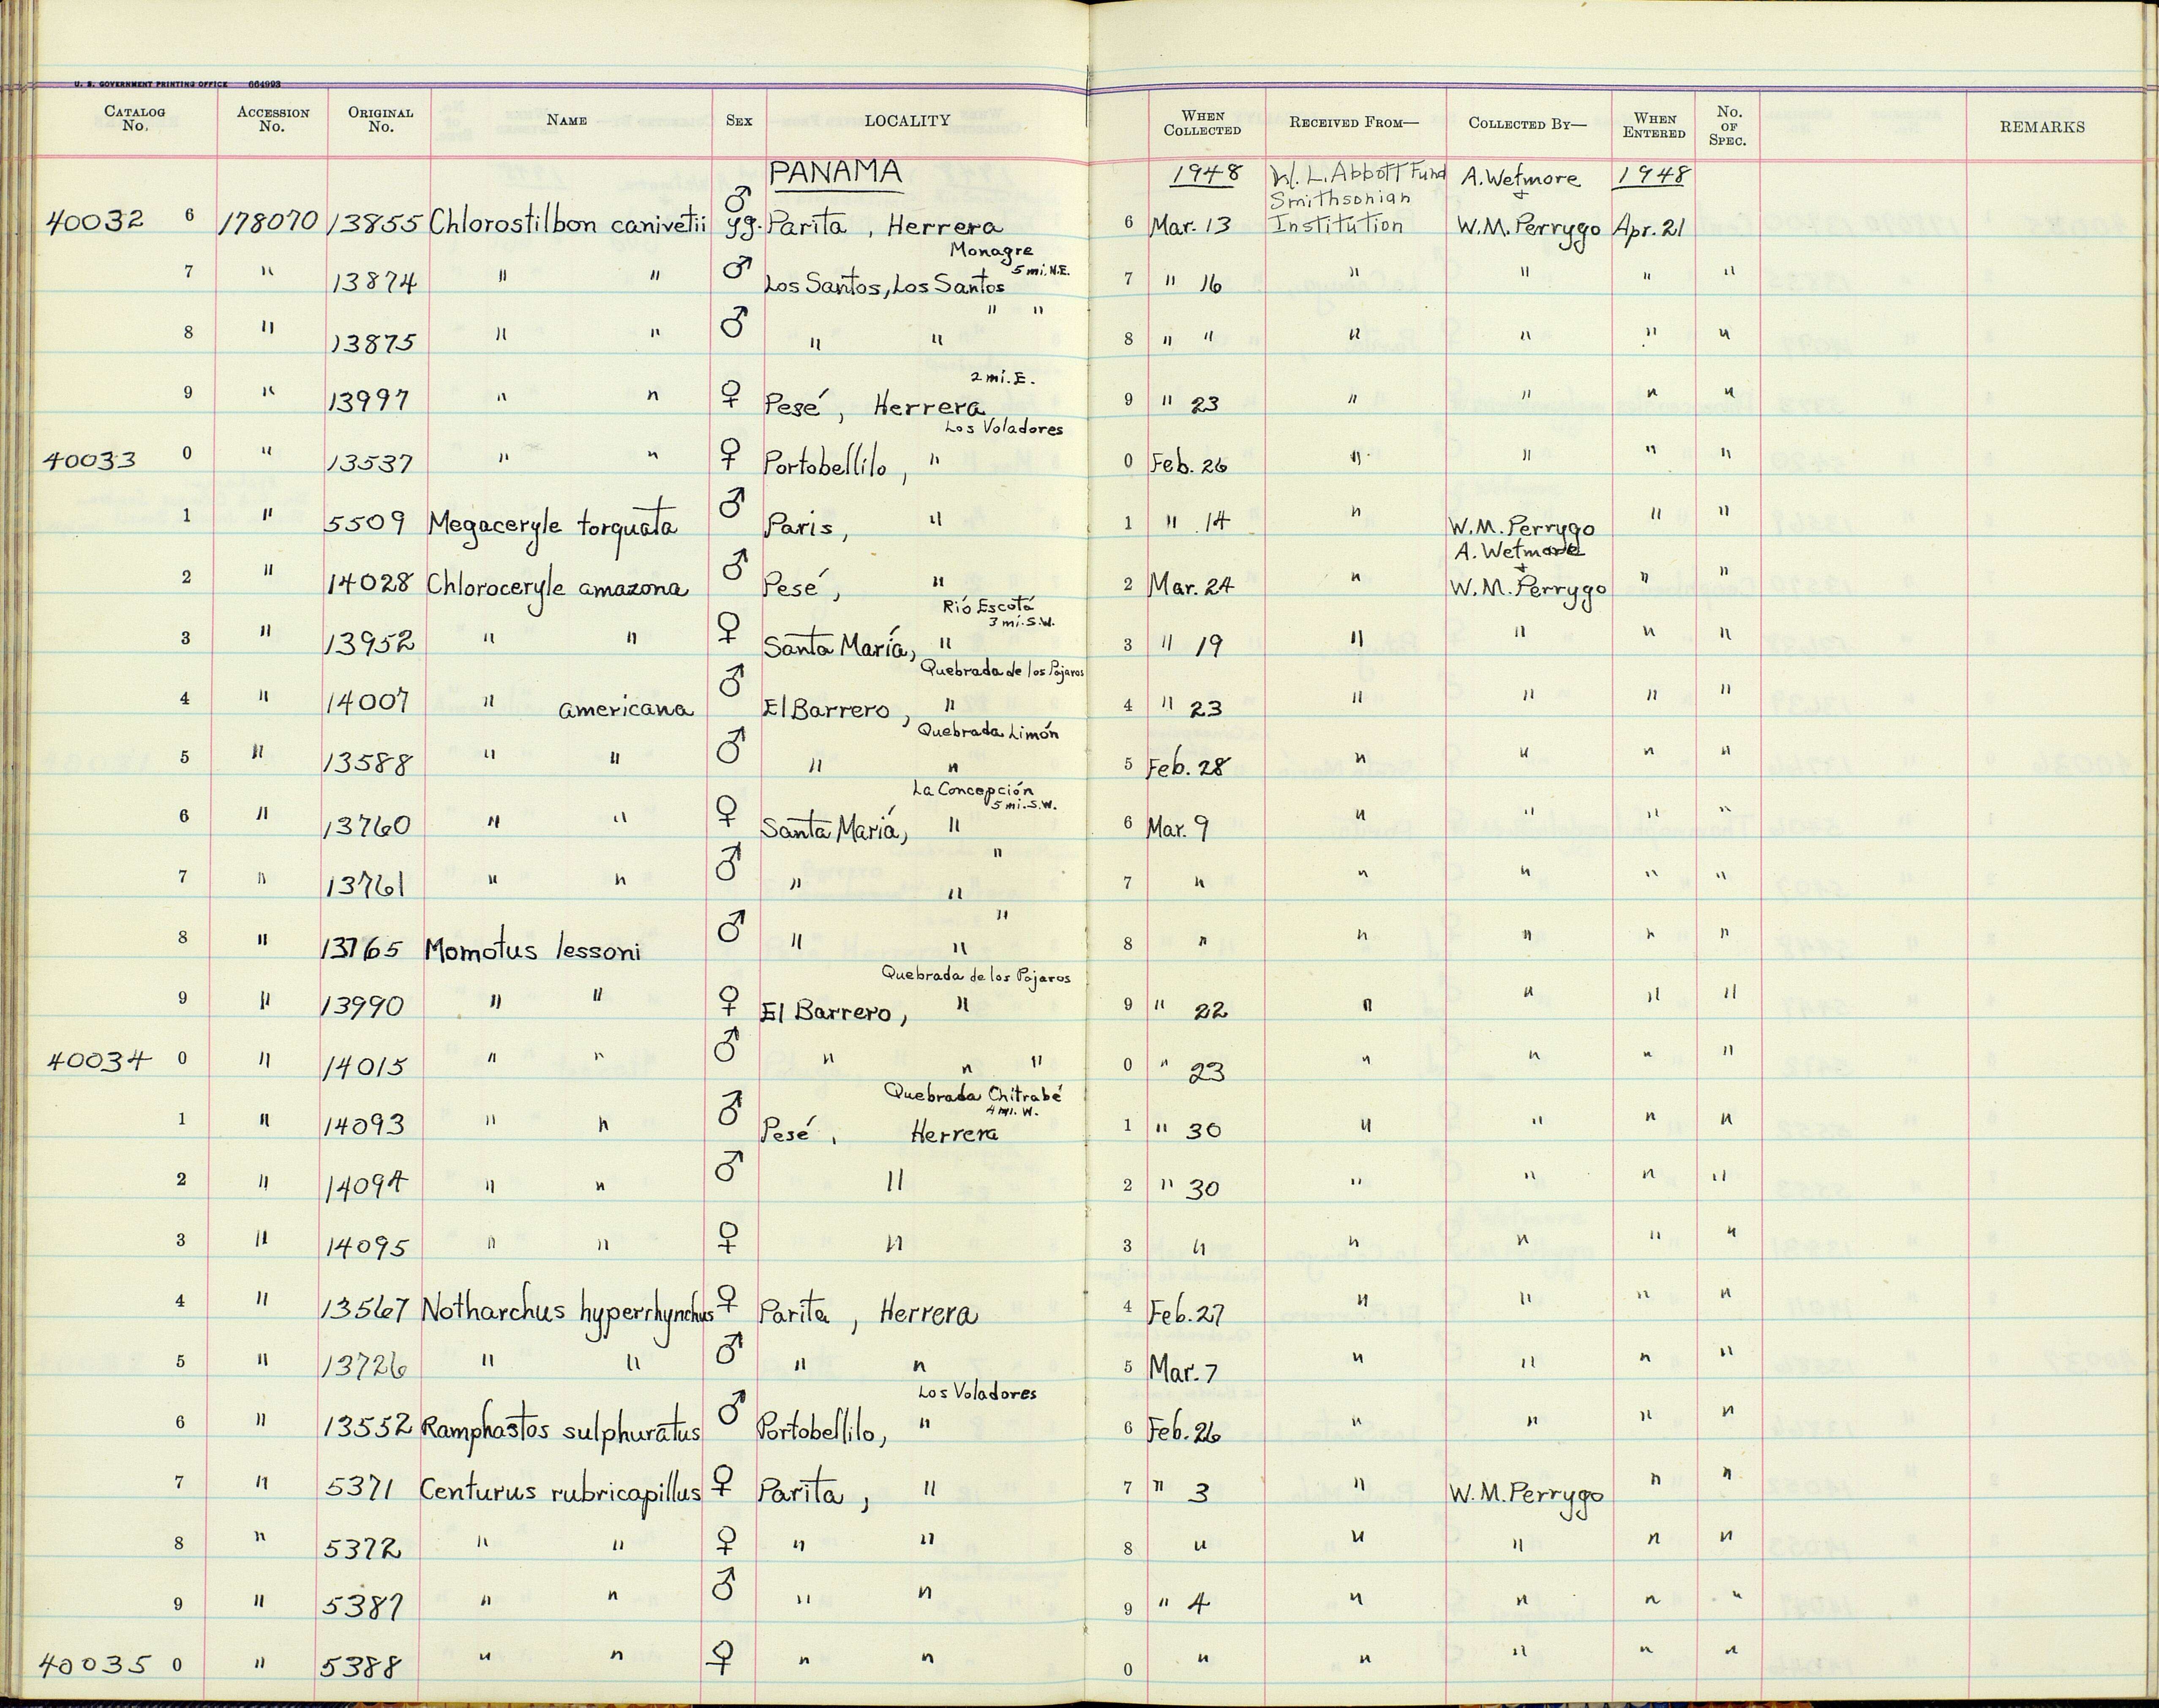 U. S. GOVERNMENT PRINTING OFFICE 664993
CATALOG No. ACCESSION No. ORIGINAL No. NAME SEX LOCALITY WHEN COLLECTED RECEIVED FROM— COLLECTED BY— WHEN ENTERED No. OF SPEC. REMARKS
PANAMA 1948 W. L. Abbott Fund A. Wetmore 1948
Smithsonian +
40032 6 178070 13855 Chlorostilbon canivetii ♂ yg. Parita, Herrera 6 Mar. 13 Institution W.M. Perrygo Apr. 21
Monagre
5 mi. N.E.
7 " 13874 " " ♂ Los Santos, Los Santos 7 " 16 " " " "
" "
8 " 13875 " " ♂ " " 8 " " " " " "
2 mi. E.
9 " 13997 " " ♀ Pesé, Herrera 9 " 23 " " " "
Los Voladores
40033 0 " 13537 " " ♀ Portobellilo, " 0 Feb. 26 " " " "
1 " 5509 Megaceryle torquata ♂ Paris, " 1 " 14 " W.M. Perrygo " "
A. Wetmore
+
2 " 14028 Chloroceryle amazona ♂ Pesé, " 2 Mar. 24 " W.M. Perrygo " "
Río Escotá
3 mi. S.W.
3 " 13952 " " ♀ Santa María, " 3 " 19 " " " "
Quebrada de los Pájaros
4 " 14007 " americana ♂ El Barrero, " 4 " 23 " " " "
Quebrada Limón
5 " 13588 " " ♂ " " 5 Feb. 28 " " " "
La Concepción
5 mi. S.W.
6 " 13760 " " ♀ Santa María, " 6 Mar. 9 " " " "
"
7 " 13761 " " ♂ " " 7 " " " " "
"
8 " 13765 Momotus lessoni ♂ " " 8 " " " " "
Quebrada de los Pájaros
9 " 13990 " " ♀ El Barrero, " 9 " 22 " " " "
40034 0 " 14015 " " ♂ " " " 0 " 23 " " " "
Quebrada Chitrabé
4 mi. W.
1 " 14093 " " ♂ Pesé, Herrera 1 " 30 " " " "
2 " 14094 " " ♂ " 2 " 30 " " " "
3 " 14095 " " ♀ " 3 " " " " "
4 " 13567 Notharchus hyperrhynchus ♀ Parita, Herrera 4 Feb. 27 " " " "
5 " 13726 " " ♂ " " 5 Mar. 7 " " " "
Los Voladores
6 " 13552 Ramphastos sulphuratus ♂ Portobellilo, " 6 Feb. 26 " " " "
7 " 5371 Centurus rubricapillus ♀ Parita, " 7 " 3 " W.M. Perrygo " "
8 " 5372 " " ♀ " " 8 " " " " "
9 " 5387 " " ♂ " " 9 " 4 " " " "
40035 0 " 5388 " " ♀ " " 0 " " " " "